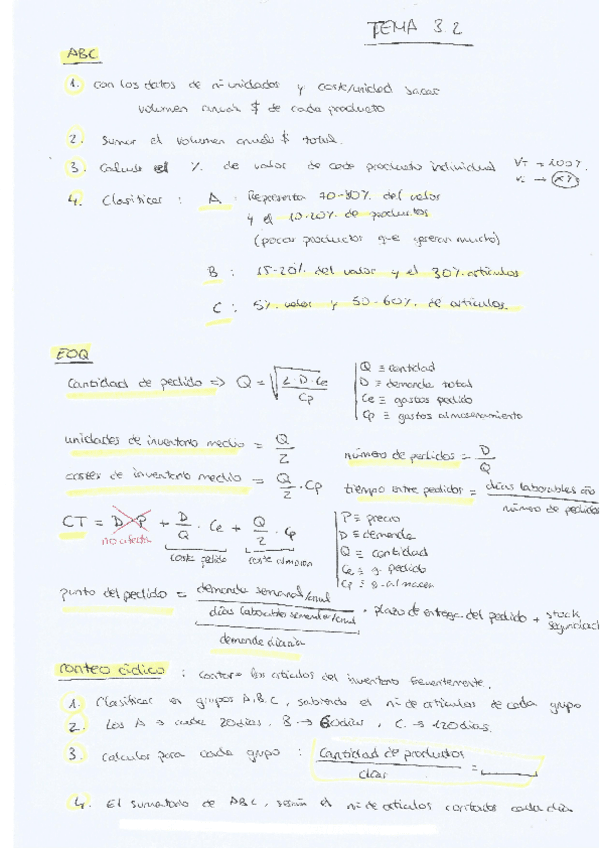 TEMA 3.2
ABC
1. Con los datos de nº unidades y coste/unidad sacar
volumen anual $ de cada producto
2. Sumar el volumen anual $ total.
3. Calcular el % de valor de cada producto individual VT = 100% Vi → X%
4. Clasificar : A : Representa 70-80% del valor
y el 10-20% de productos
(pocos productos que generan mucho)
B : 15-20% del valor y el 30% artículos
C : 5% valor y 50-60% de artículos.
EOQ
Cantidad de pedido => Q = √(2·D·Ce / Cp)
Q ≡ cantidad
D ≡ demanda total
Ce ≡ gastos pedido
Cp ≡ gastos almacenamiento
unidades de inventario medio = Q/2
número de pedidos = D/Q
costes de inventario medio = Q/2 · Cp
tiempo entre pedidos = días laborables año / número de pedidos
CT = D·P + D/Q · Ce + Q/2 · Cp
no afecta
coste pedido coste almacen
P ≡ precio
D ≡ demanda
Q ≡ cantidad
Ce ≡ g. pedido
Cp ≡ g. almacen
punto del pedido = demanda semanal/anual / días laborables semanales/anual · plazo de entrega del pedido + stock seguridad
demanda diaria
conteo cíclico : contar los artículos del inventario frecuentemente.
1. Clasificar en grupos A,B,C, sabiendo el nº de artículos de cada grupo
2. Los A → cada 20 días, B → 60 días, C → 120 días.
3. Calcular para cada grupo : Cantidad de productos / días =
4. El sumatorio de ABC, según el nº de artículos contados cada día